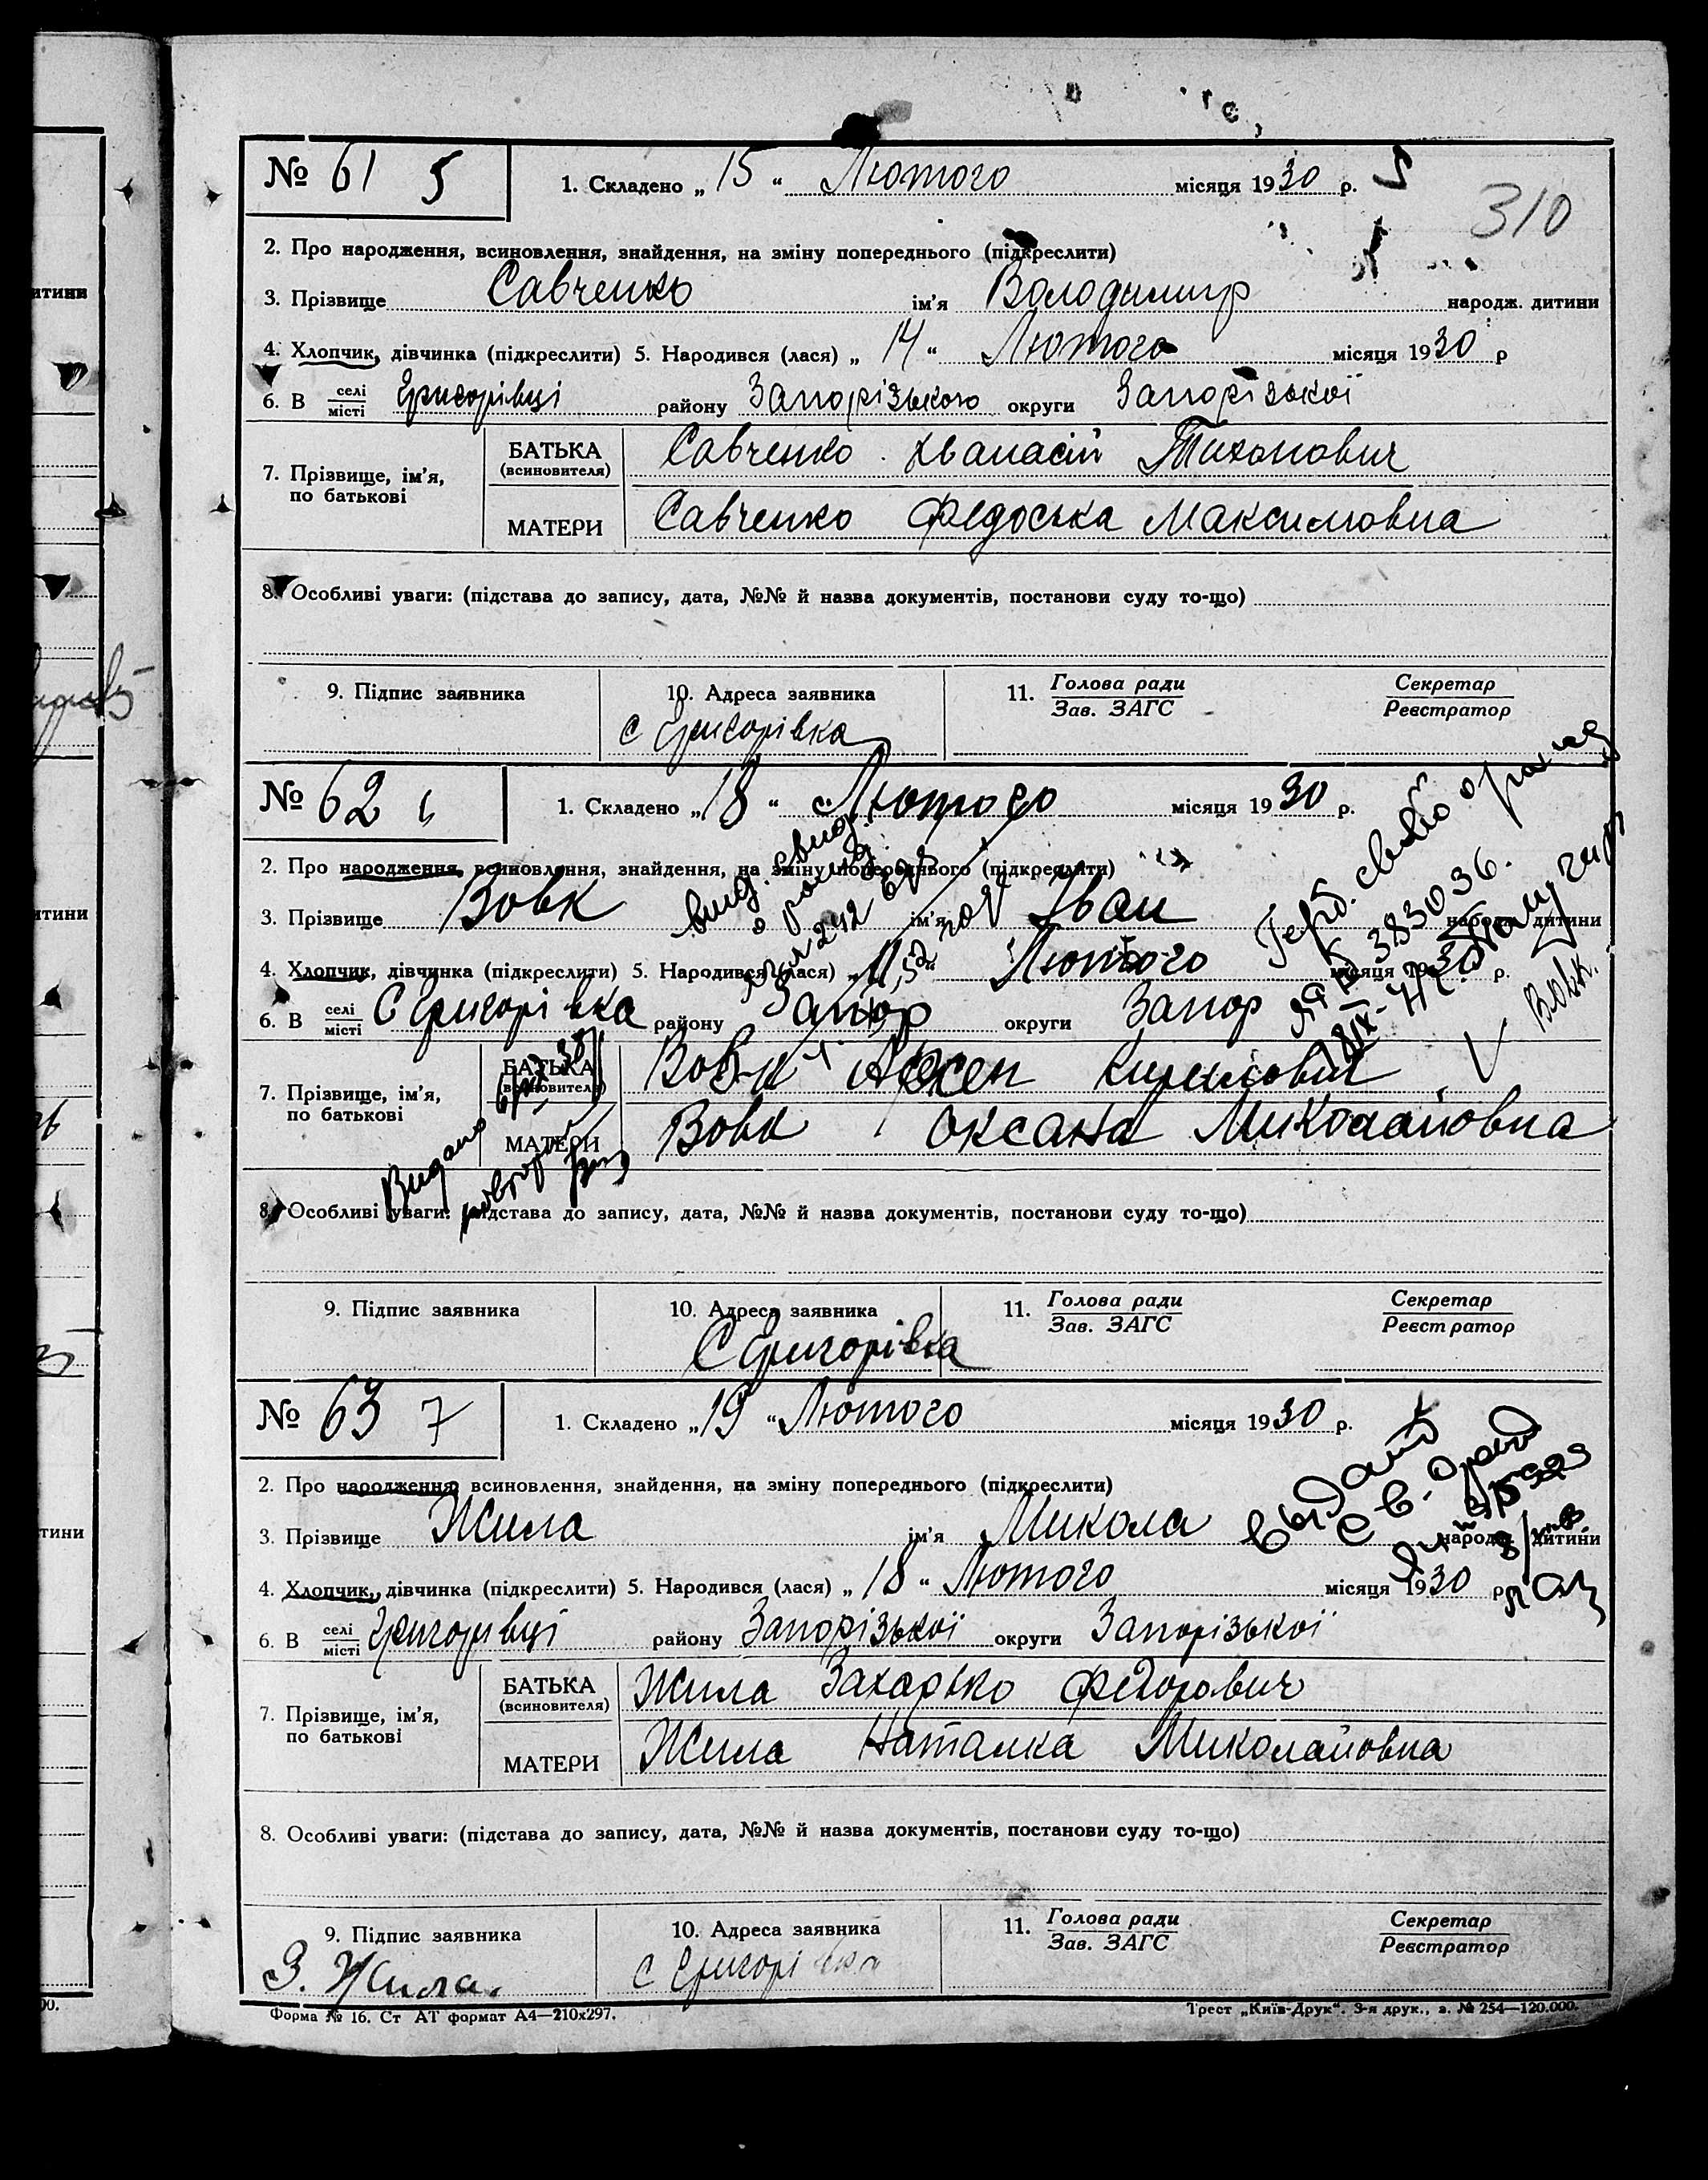 310
№ 61 5
1. Складено „ 15 “ Лютого місяця 1930 р. 5
2. Про народження, всиновлення, знайдення, на зміну попереднього (підкреслити)
3. Прізвище Савченко ім'я Володимир народж. дитини
4. Хлопчик, дівчинка (підкреслити) 5. Народився (лася) „ 14 “ Лютого місяця 1930 р
6. В селі місті Григорівці району Запорізького округи Запорізької
7. Прізвище, ім'я, по батькові
БАТЬКА (всиновителя) Савченко Хванасій Тихонович
МАТЕРИ Савченко Федоська Максимовна
8. Особливі уваги: (підстава до запису, дата, №№ й назва документів, постанови суду то-що)
9. Підпис заявника
10. Адреса заявника
с Григорівка
11. Голова ради Зав. ЗАГС
Секретар Реєстратор
№ 62
1. Складено „ 18 “ Лютого місяця 1930 р.
2. Про народження, всиновлення, знайдення, на зміну попереднього (підкреслити)
3. Прізвище Вовк ім'я Іван народж. дитини
4. Хлопчик, дівчинка (підкреслити) 5. Народився (лася) Лютого місяця 1930 р.
6. В селі місті С Григорівка району Запор округи Запор
7. Прізвище, ім'я, по батькові
БАТЬКА (всиновителя) Вовк Кирилович
МАТЕРИ Вовк Оксана Миколайовна
Видано
383036.
Вовк.
8. Особливі уваги: (підстава до запису, дата, №№ й назва документів, постанови суду то-що)
9. Підпис заявника
10. Адреса заявника
С Григорівка
11. Голова ради Зав. ЗАГС
Секретар Реєстратор
№ 63 7
1. Складено „ 19 “ Лютого місяця 1930 р.
2. Про народження, всиновлення, знайдення, на зміну попереднього (підкреслити)
3. Прізвище Жила ім'я Микола народж. дитини
4. Хлопчик, дівчинка (підкреслити) 5. Народився (лася) „ 18 “ Лютого місяця 1930 р
6. В селі місті Григорівці району Запорізької округи Запорізької
7. Прізвище, ім'я, по батькові
БАТЬКА (всиновителя) Жила Захарько Федорович
МАТЕРИ Жила Наталка Миколайовна
8. Особливі уваги: (підстава до запису, дата, №№ й назва документів, постанови суду то-що)
9. Підпис заявника
З. Жила.
10. Адреса заявника
с Григорівка
11. Голова ради Зав. ЗАГС
Секретар Реєстратор
Форма № 16. Ст АТ формат А4—210х297.
Трест „Київ-Друк“. 3-я друк., з. № 254—120.000.